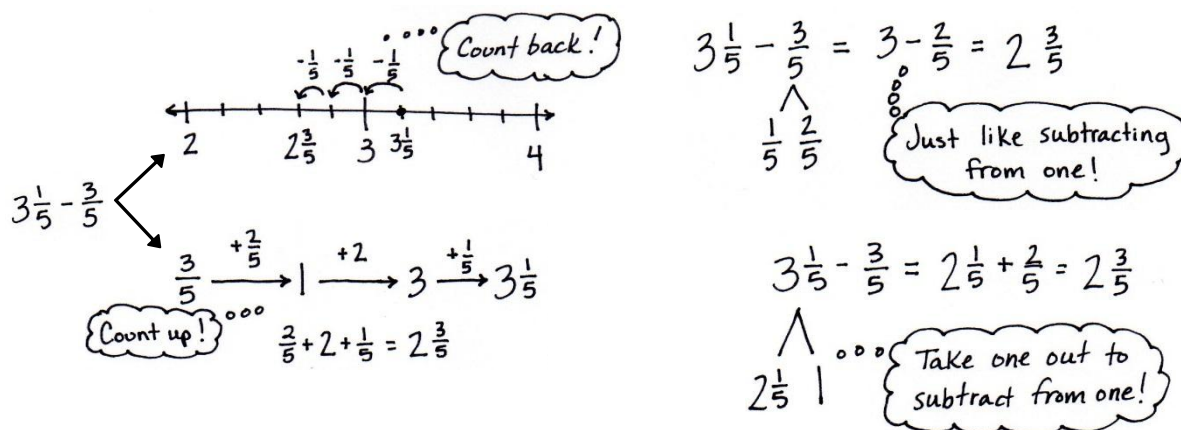 Count back!
-1/5 -1/5 -1/5
2 2 3/5 3 3 1/5 4
3 1/5 - 3/5
3/5 +2/5 1 +2 3 +1/5 3 1/5
Count up!
2/5 + 2 + 1/5 = 2 3/5
3 1/5 - 3/5 = 3 - 2/5 = 2 3/5
1/5 2/5
Just like subtracting
from one!
3 1/5 - 3/5 = 2 1/5 + 2/5 = 2 3/5
2 1/5 1
Take one out to
subtract from one!